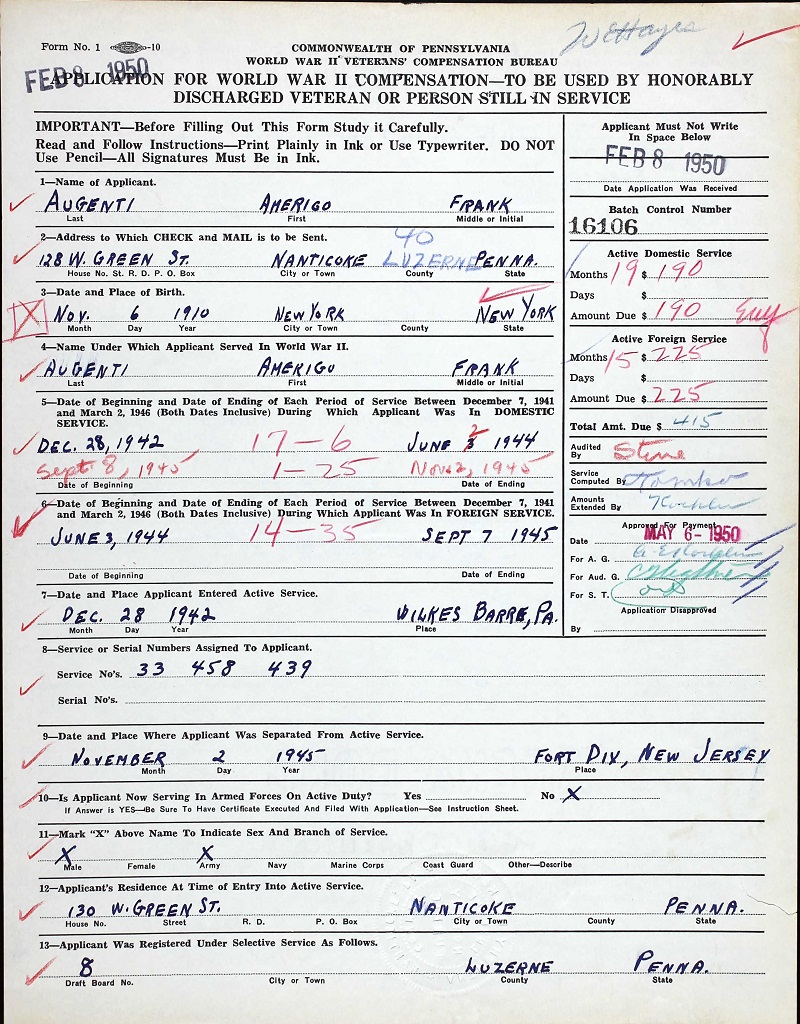 W E Hayes
Form No. 1 -10
COMMONWEALTH OF PENNSYLVANIA
WORLD WAR II VETERANS' COMPENSATION BUREAU
FEB 8 1950
APPLICATION FOR WORLD WAR II COMPENSATION—TO BE USED BY HONORABLY
DISCHARGED VETERAN OR PERSON STILL IN SERVICE
IMPORTANT—Before Filling Out This Form Study it Carefully.
Read and Follow Instructions—Print Plainly in Ink or Use Typewriter. DO NOT
Use Pencil—All Signatures Must Be in Ink.
1—Name of Applicant.
AUGENTI AMERIGO FRANK
Last First Middle or Initial
2—Address to Which CHECK and MAIL is to be Sent.
40
128 W. GREEN ST. NANTICOKE LUZERNE PENNA.
House No. St. R. D. P. O. Box City or Town County State
3—Date and Place of Birth.
X NOV. 6 1910 NEW YORK NEW YORK
Month Day Year City or Town County State
4—Name Under Which Applicant Served In World War II.
AUGENTI AMERIGO FRANK
Last First Middle or Initial
5—Date of Beginning and Date of Ending of Each Period of Service Between December 7, 1941
and March 2, 1946 (Both Dates Inclusive) During Which Applicant Was In DOMESTIC
SERVICE.
DEC. 28, 1942 17-6 JUNE 2 1944
Sept. 8, 1945 1-25 Nov 2, 1945
Date of Beginning Date of Ending
6—Date of Beginning and Date of Ending of Each Period of Service Between December 7, 1941
and March 2, 1946 (Both Dates Inclusive) During Which Applicant Was In FOREIGN SERVICE.
JUNE 3, 1944 14-35 SEPT 7 1945
Date of Beginning Date of Ending
7—Date and Place Applicant Entered Active Service.
DEC. 28 1942 WILKES BARRE, PA.
Month Day Year Place
Applicant Must Not Write
In Space Below
FEB 8 1950
Date Application Was Received
Batch Control Number
16106
Active Domestic Service
Months 19 $ 190
Days $
Amount Due $ 190
Active Foreign Service
Months 15 $ 225
Days $
Amount Due $ 225
Total Amt. Due $ 415
Audited
By Stine
Service
Computed By
Amounts
Extended By
Approved For Payment
Date MAY 6 - 1950
For A. G.
For Aud. G.
For S. T.
Application Disapproved
By
8—Service or Serial Numbers Assigned To Applicant.
Service No's. 33 458 439
Serial No's.
9—Date and Place Where Applicant Was Separated From Active Service.
NOVEMBER 2 1945 FORT DIX, NEW JERSEY
Month Day Year Place
10—Is Applicant Now Serving In Armed Forces On Active Duty? Yes No X
If Answer is YES—Be Sure To Have Certificate Executed And Filed With Application—See Instruction Sheet.
11—Mark "X" Above Name To Indicate Sex And Branch of Service.
X X
Male Female Army Navy Marine Corps Coast Guard Other—Describe
12—Applicant's Residence At Time of Entry Into Active Service.
130 W. GREEN ST. NANTICOKE PENNA.
House No. Street R. D. P. O. Box City or Town County State
13—Applicant Was Registered Under Selective Service As Follows.
8 LUZERNE PENNA.
Draft Board No. City or Town County State